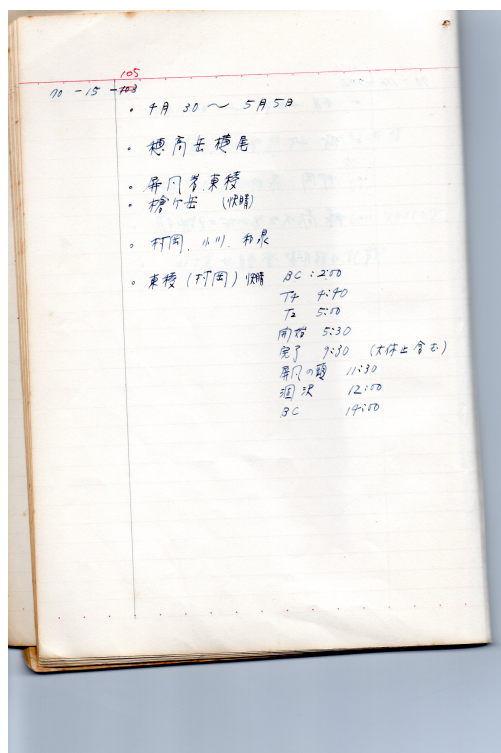 105
70 - 15 - 103
・4月 30 〜 5月5日
・穂高岳横尾
・屏風岩東稜
・槍ヶ岳 (快晴)
・村岡、小川、和泉
・東稜 (村岡) 快晴 BC : 2:00
T4 4:40
T2 5:00
開始 5:30
完了 9:30 (大休止含む)
屏風の頭 11:30
涸沢 12:00
BC 14:00